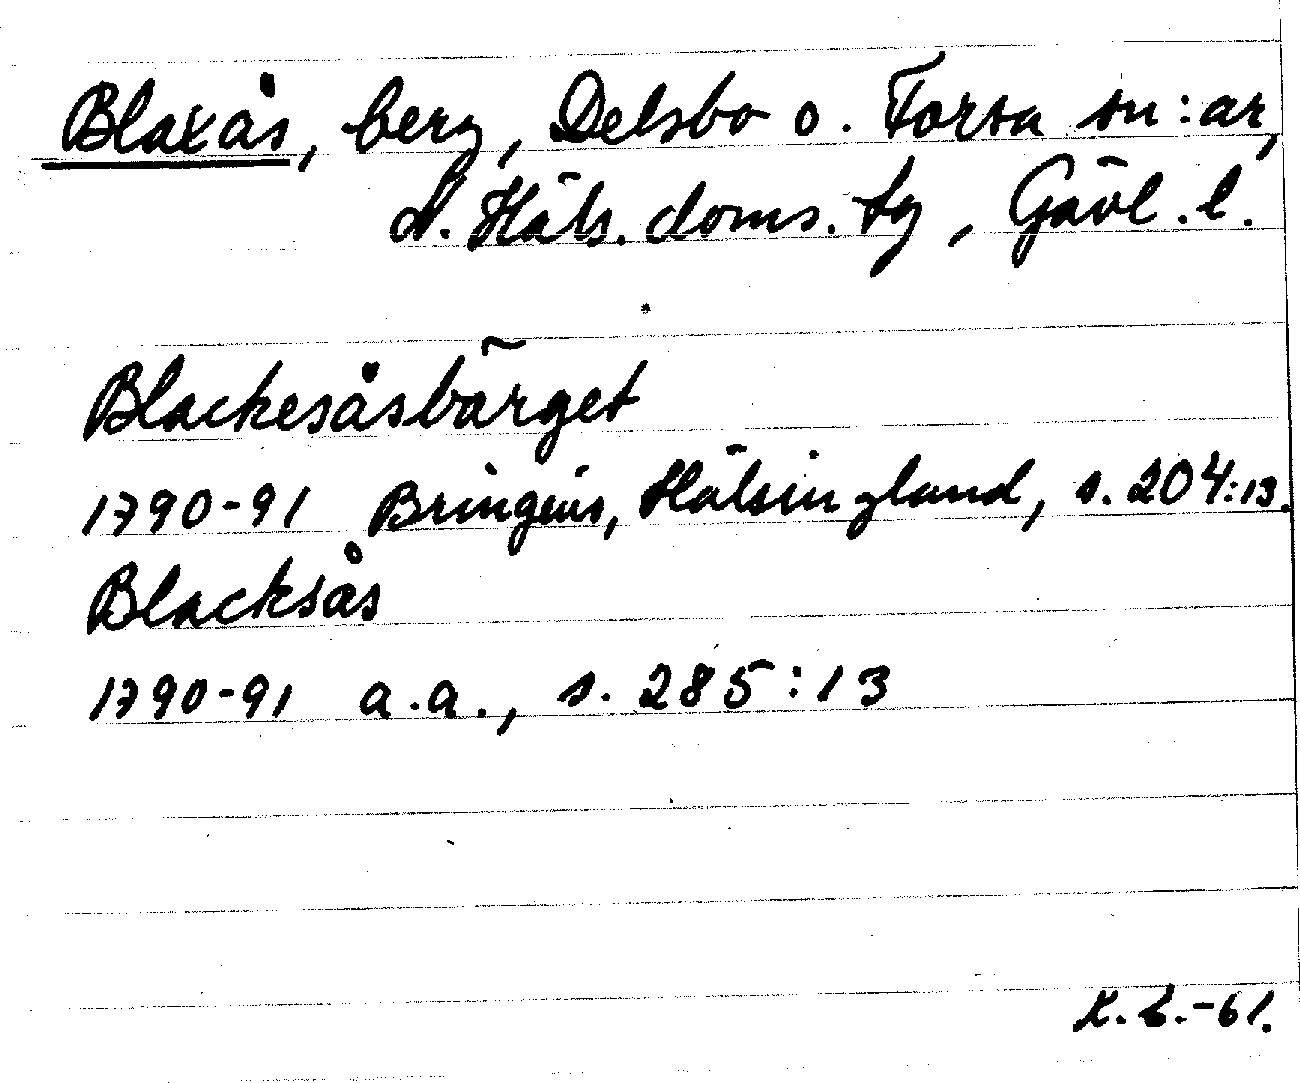 Blaxås, berg, Delsbo o. Forsa sn:ar,
N. Häls. doms. tg, Gävl. l.
Blackesåsbärget
1790-91 Bringéus, Hälsingland, s. 204:13.
Blacksås
1790-91 a.a., s. 285:13
-61.